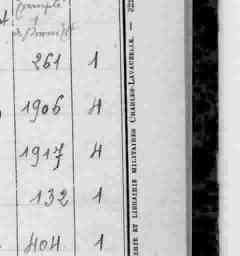 261 1
1906 4
1917 4
132 1
404 1
RIE ET LIBRAIRIE MILITAIRES CHARLES-LAVAUZELLE. —